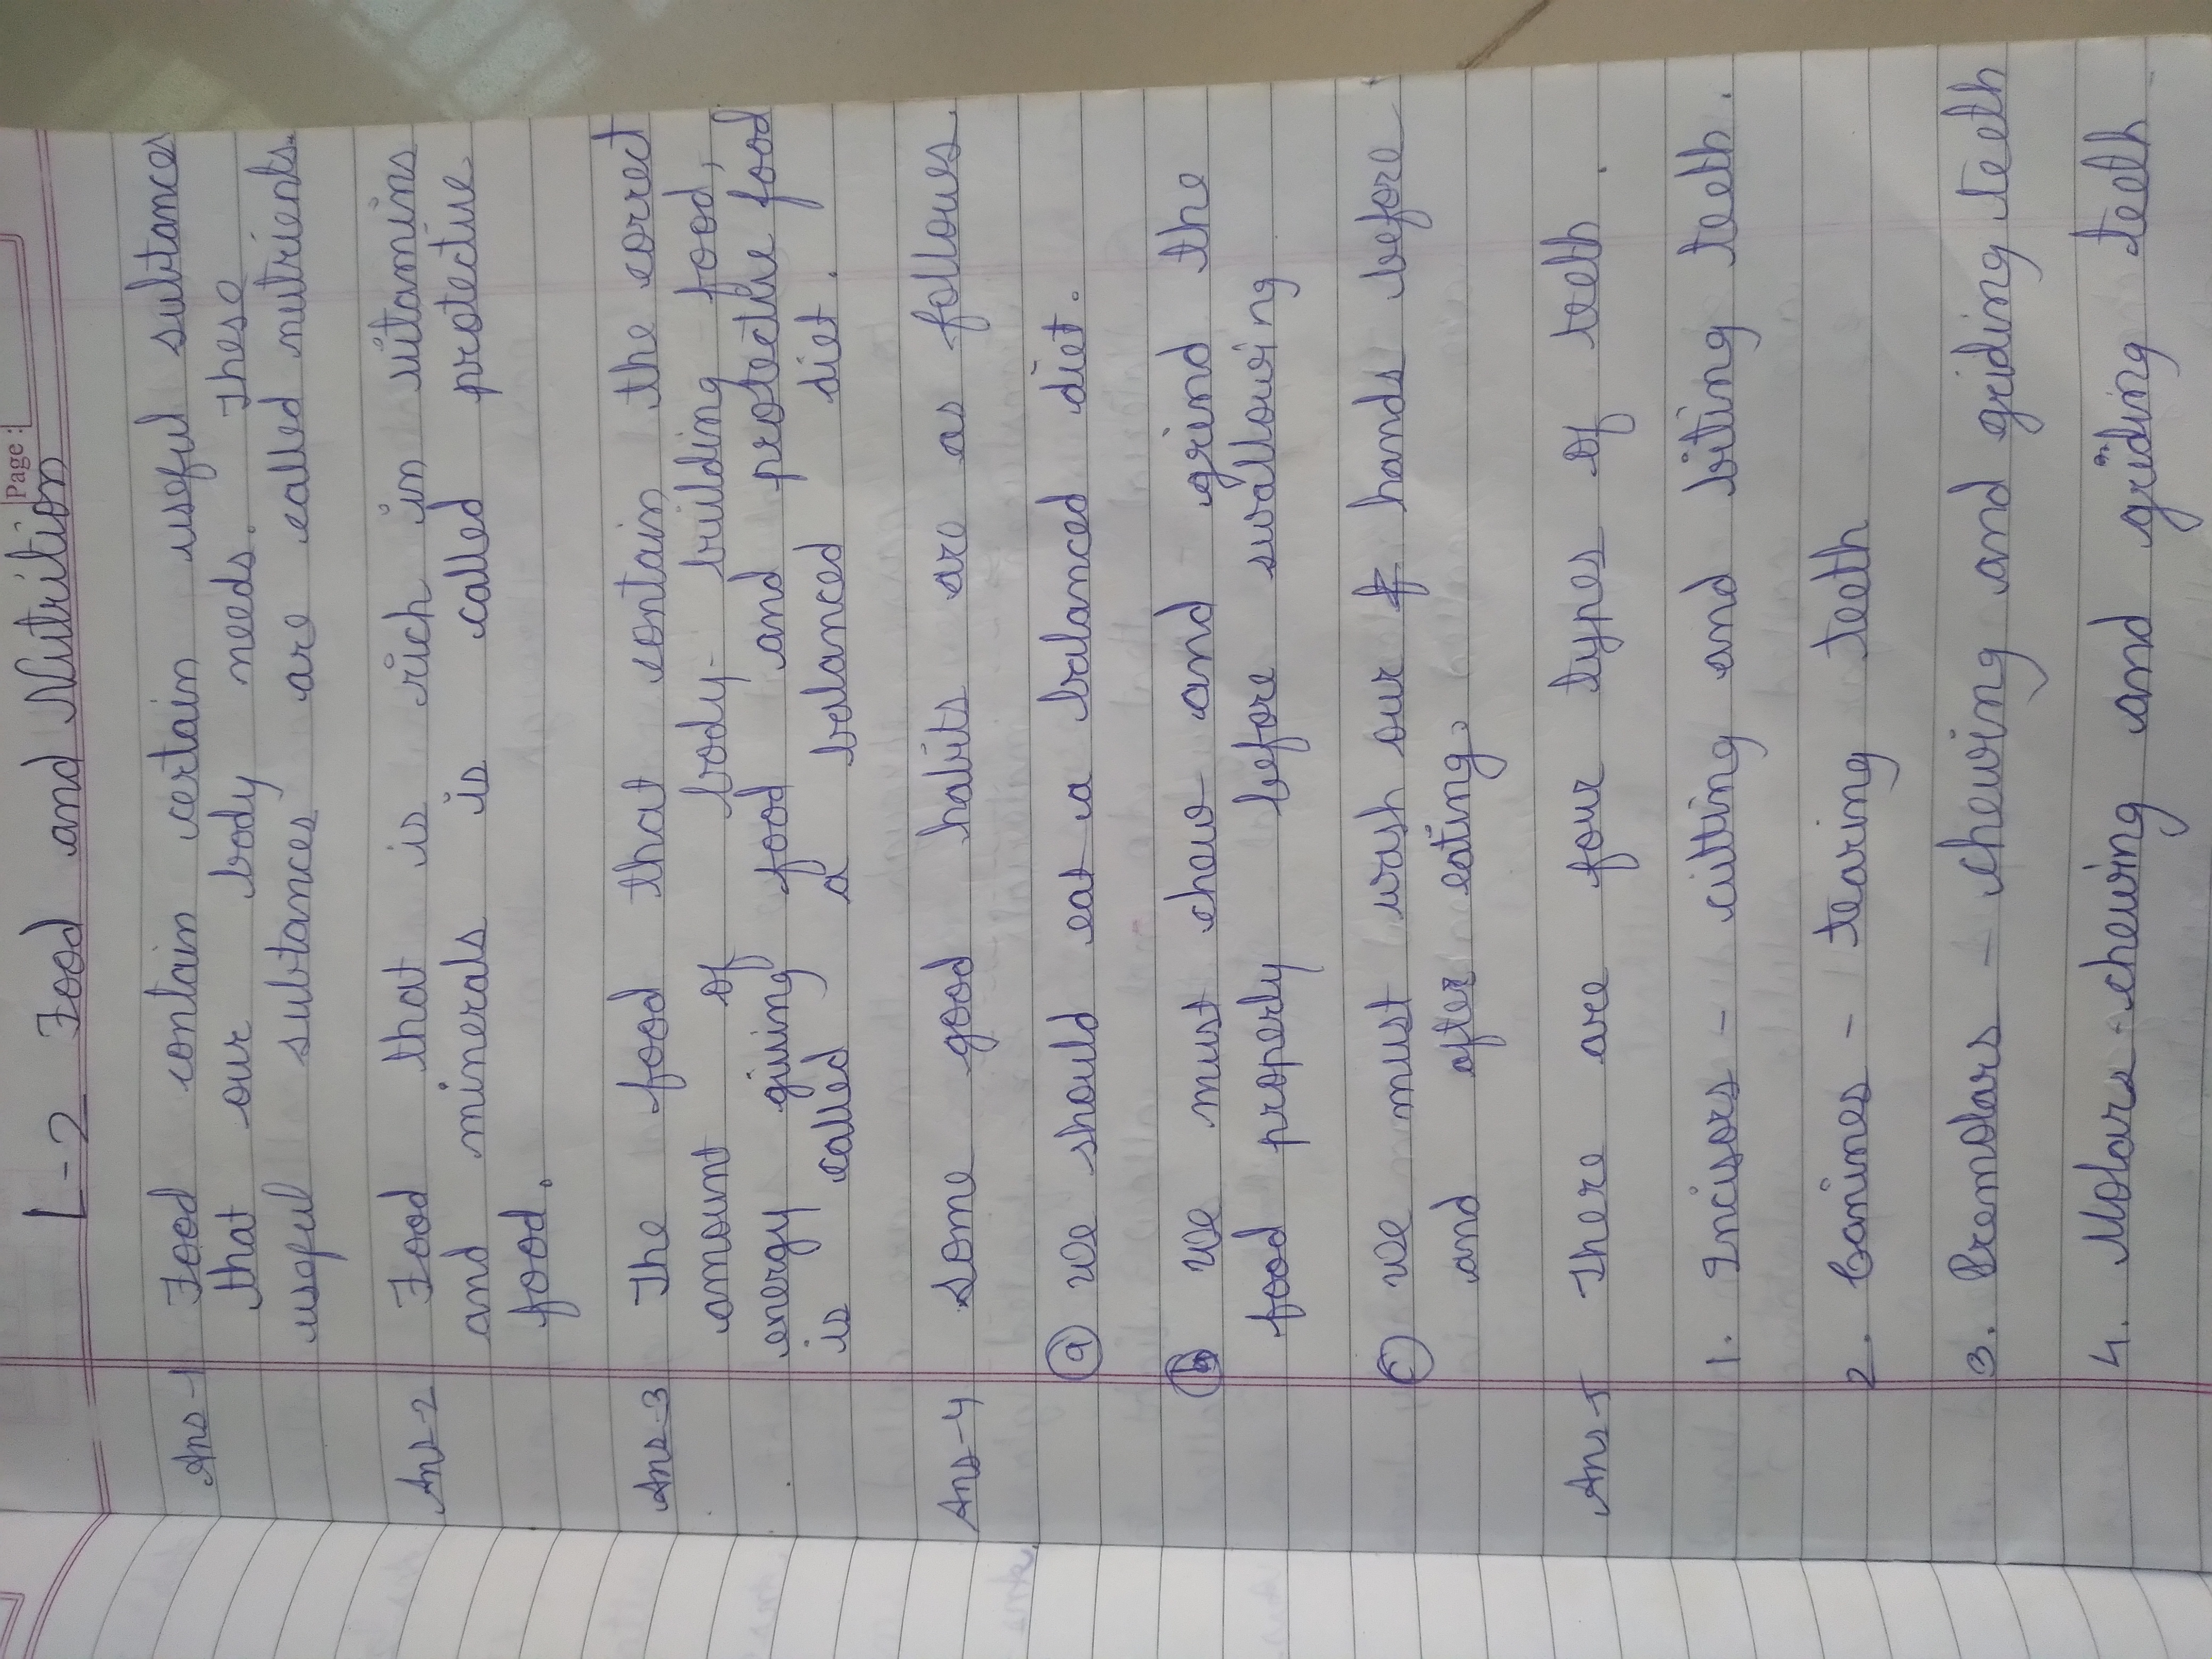 Page :
L-2 Food and Nutrition
Ans-1 Food contain certain useful subtances
that our body needs. These
useful subtances are called nutrients.
Ans-2 Food that is rich in vitamins
and minerals is called protective
food.
Ans-3 The food that contain the correct
amount of body- building food,
energy giving food and protective food
is called a balanced diet.
Ans-4 Some good habits are as follows.
(a) We should eat a balanced diet.
(b) We must chew and grind the
food properly before swallowing
(c) We must wash our hands before
and after eating.
Ans-5 There are four types of teeth.
1. Incisors - cutting and biting teeth.
2. Canines - tearing teeth
3. Premolars - chewing and griding teeth
4. Molars - chewing and grinding teeth